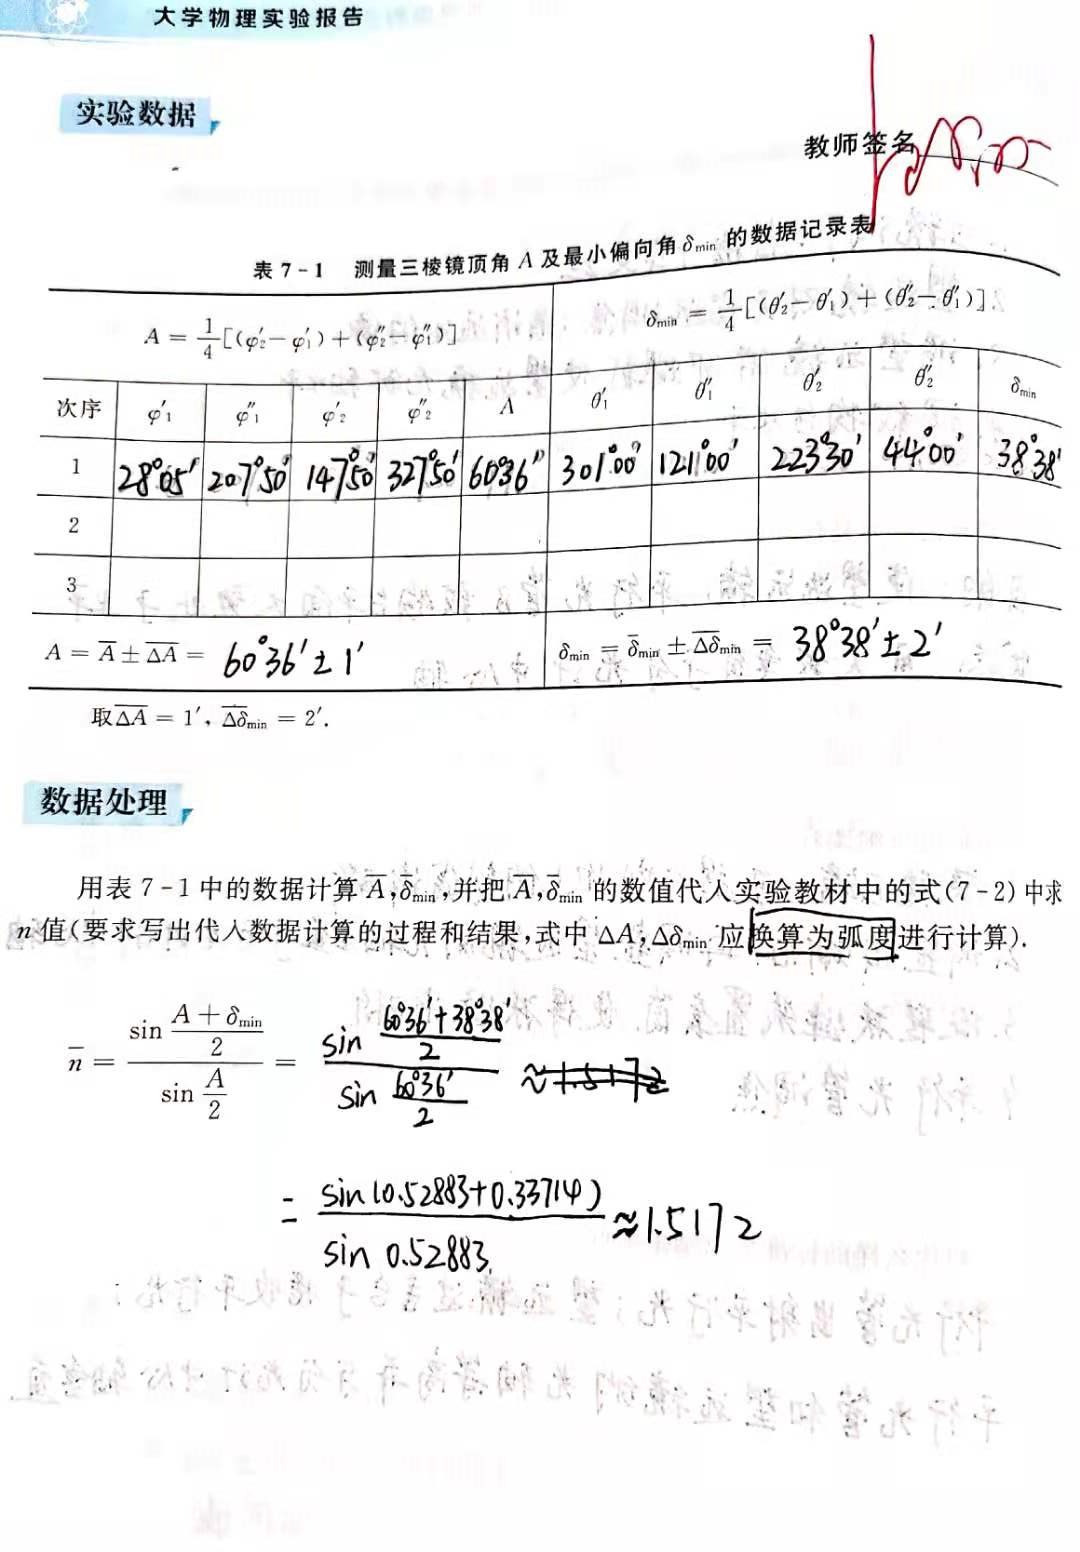 大学物理实验报告
实验数据
教师签名
表 7-1 测量三棱镜顶角 A 及最小偏向角 δmin 的数据记录表
A = 1/4[(φ′2-φ′1)+(φ″2-φ″1)] δmin = 1/4[(θ′2-θ′1)+(θ″2-θ″1)]
次序 φ′1 φ″1 φ′2 φ″2 A θ′1 θ″1 θ′2 θ″2 δmin
1 28°05′ 207°50′ 147°50′ 327°50′ 60°36″ 301°00′ 121°00′ 223°30′ 44°00′ 38°38′
2
3
A = A̅ ± Δ̅A̅ = 60°36′±1′ δmin = δ̅min ± Δ̅δ̅min = 38°38′±2′
取 Δ̅A̅ = 1′, Δ̅δ̅min = 2′.
数据处理
用表 7-1 中的数据计算 A̅,δ̅min,并把 A̅,δ̅min 的数值代人实验教材中的式(7-2)中求
n 值(要求写出代人数据计算的过程和结果,式中 ΔA,Δδmin 应换算为弧度进行计算).
n̅ = sin (A+δmin)/2 / sin A/2 = sin (60°36′+38°38′)/2 / sin 60°36′/2 ≈1.5172
= sin(0.52883+0.33714) / sin 0.52883 ≈1.5172